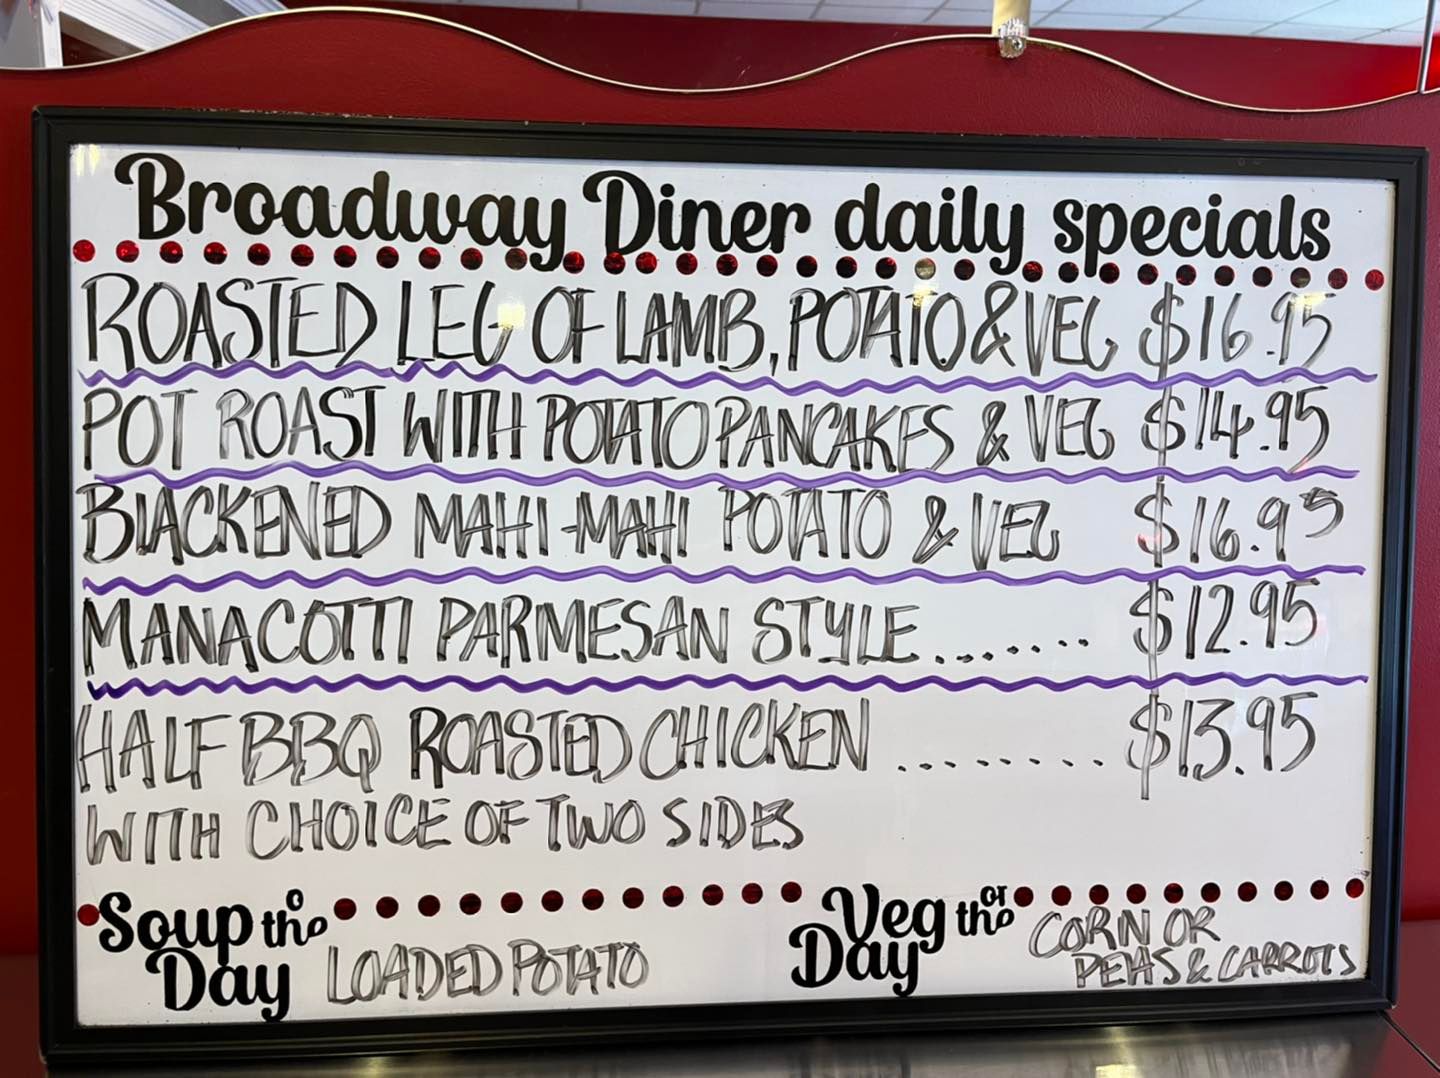 Broadway Diner daily specials
ROASTED LEG OF LAMB, POTATO & VEG $16.95
POT ROAST WITH POTATO PANCAKES & VEG $14.95
BLACKENED MAHI-MAHI POTATO & VEG $16.95
MANACOTTI PARMESAN STYLE........ $12.95
HALF BBQ ROASTED CHICKEN ......... $13.95
WITH CHOICE OF TWO SIDES
Soup of the Day LOADED POTATO
Veg of the Day CORN OR
PEAS & CARROTS